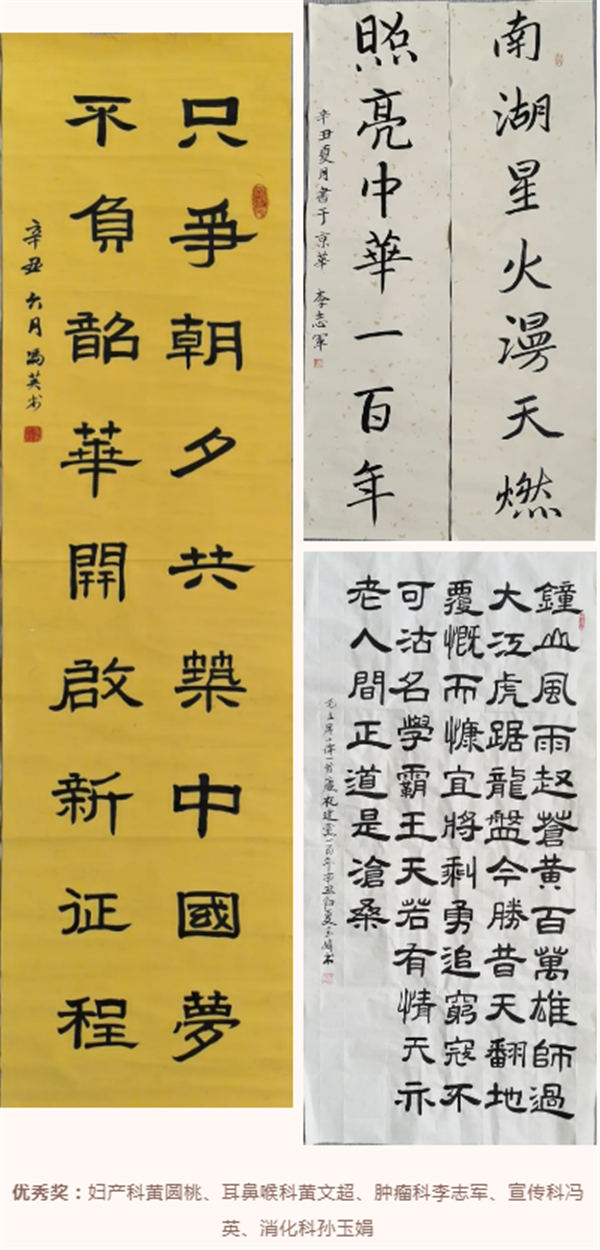 只爭朝夕共築中國夢
不負韶華開啟新征程
辛丑六月馮英书
南湖星火漫天燃
照亮中華一百年
辛丑夏月書于京華 李志軍
鐘山風雨起蒼黃百萬雄師過
大江虎踞龍盤今勝昔天翻地
覆慨而慷宜將剩勇追窮寇不
可沽名學霸王天若有情天亦
老人間正道是滄桑
毛主席七律一首慶祝建黨一百年辛丑
优秀奖：妇产科黄圆桃、耳鼻喉科黄文超、肿瘤科李志军、宣传科冯
英、消化科孙玉娟